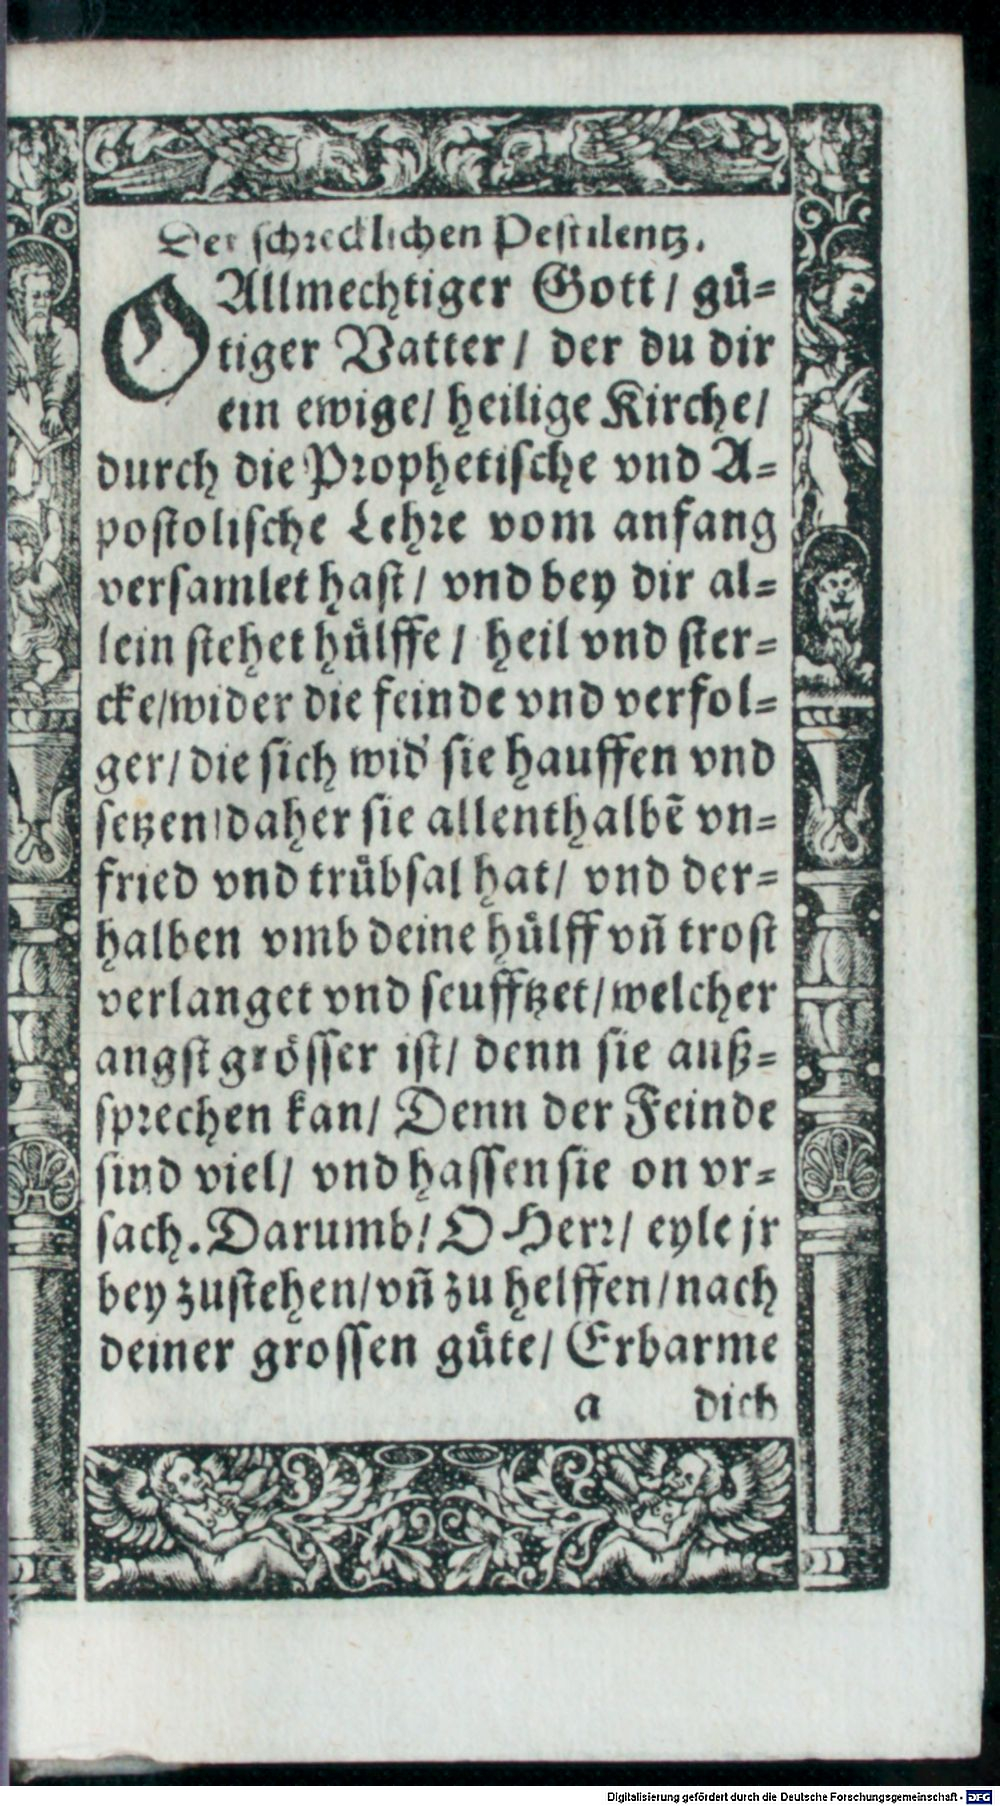 Der schrecklichen Pestilentz.
O Allmechtiger Gott / gü-
tiger Vatter / der du dir
ein ewige / heilige Kirche /
durch die Prophetische vnd A-
postolische Lehre vom anfang
versamlet hast / vnd bey dir al-
lein stehet hülffe / heil vnd ster-
cke / wider die feinde vnd verfol-
ger / die sich wid' sie hauffen vnd
setzen / daher sie allenthalbē vn-
fried vnd trübsal hat / vnd der-
halben vmb deine hülff vñ trost
verlanget vnd seufftzet / welcher
angst grösser ist / denn sie auß-
sprechen kan / Denn der Feinde
sind viel / vnd hassen sie on vr-
sach. Darumb / O Herr / eyle jr
bey zustehen / vñ zu helffen / nach
deiner grossen güte / Erbarme
a dich
Digitalisierung gefördert durch die Deutsche Forschungsgemeinschaft - DFG